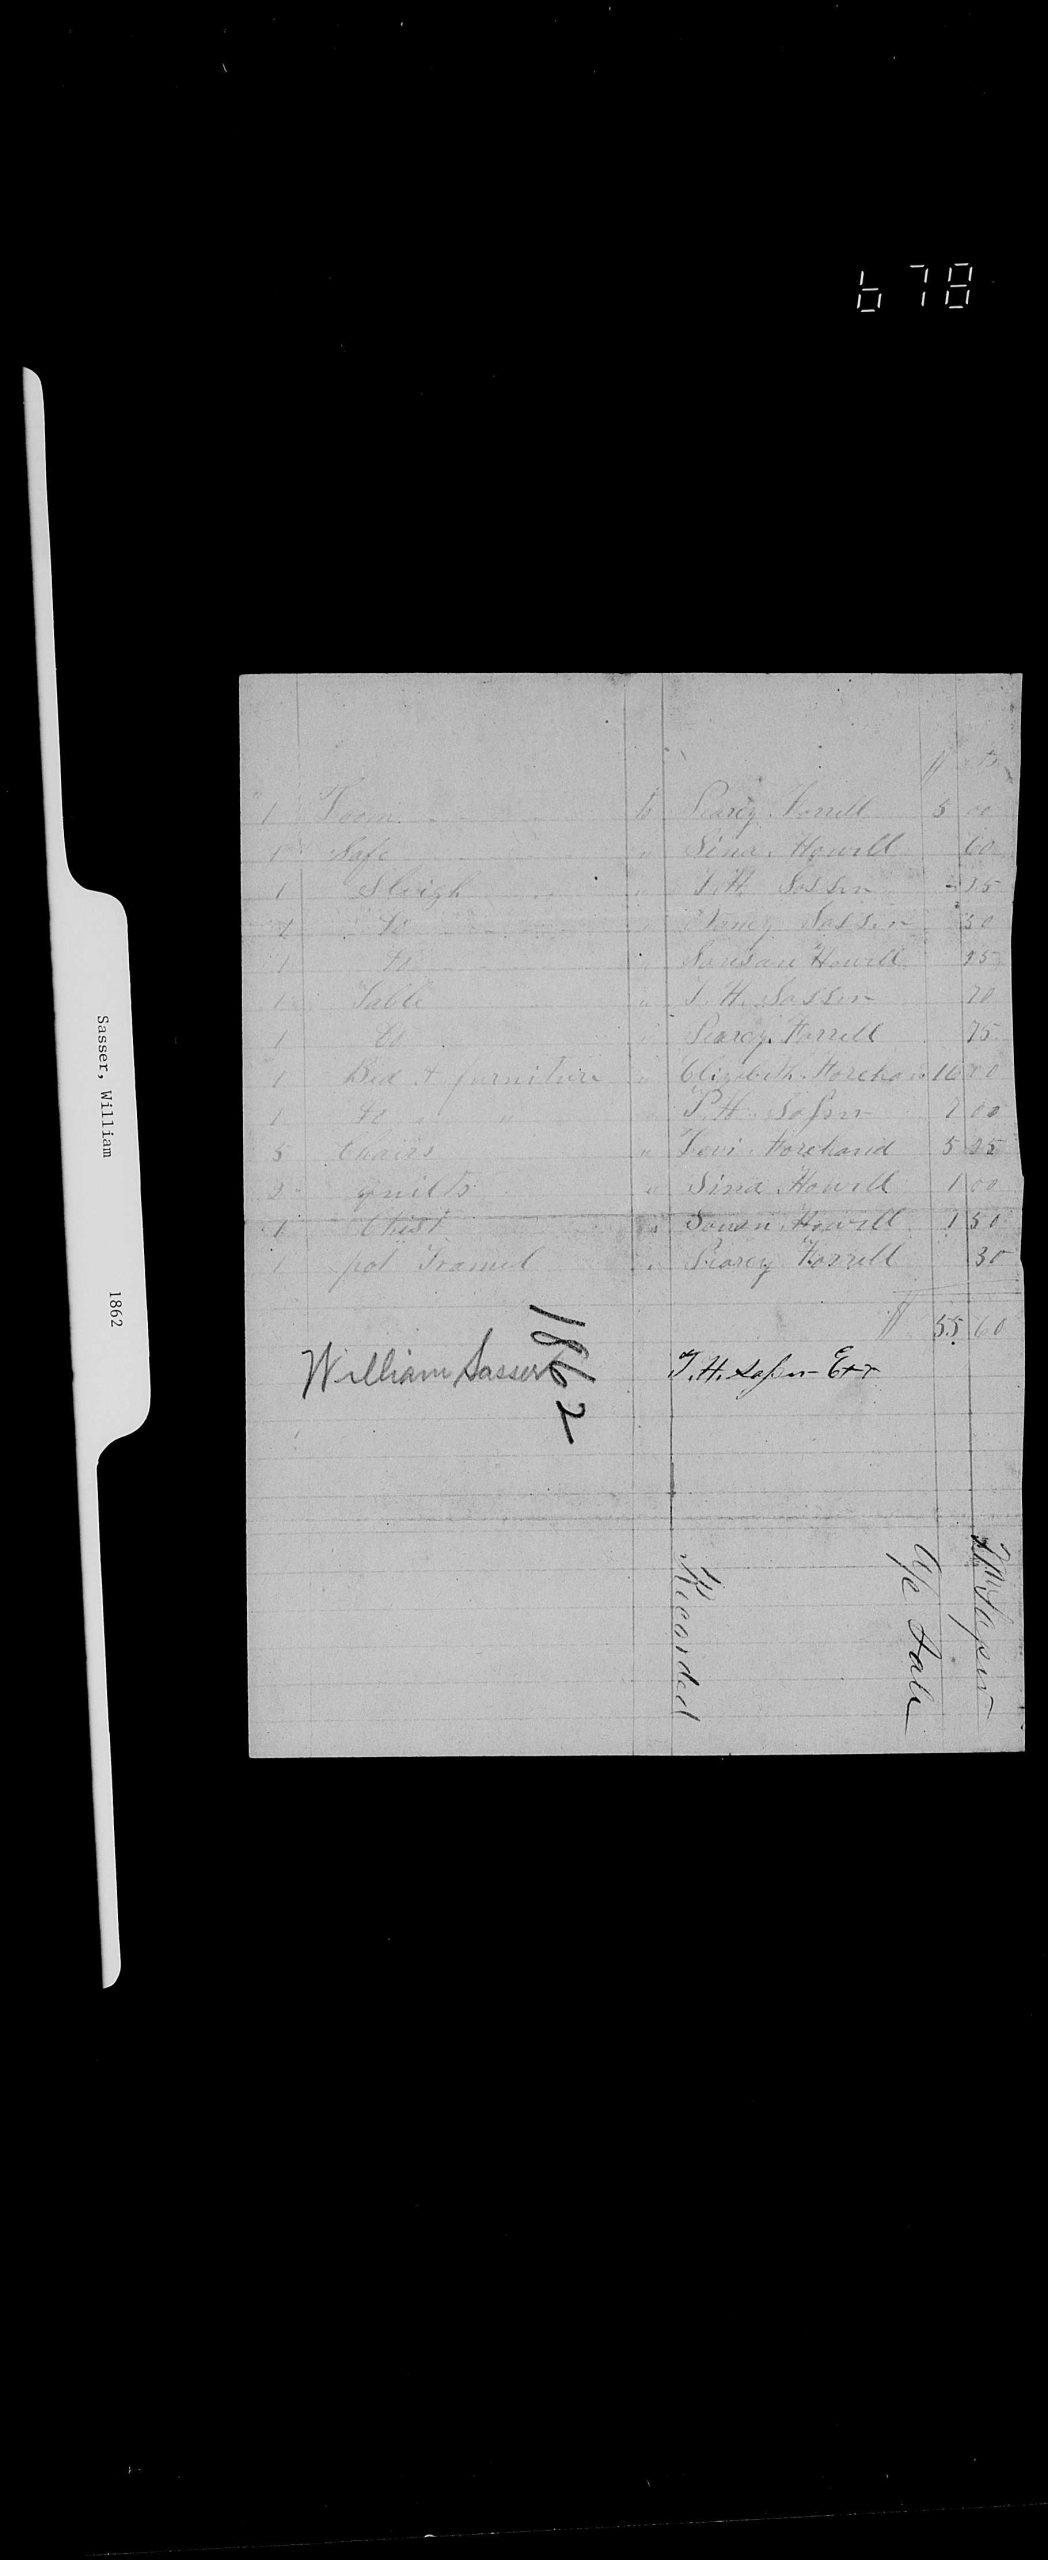 678
Sasser, William 1862
$ cts
1 Loom to Pearcy Forrell 5 00
1 Safe " Sina Howell 60
1 Sleigh " T. H. Sasser
1 do " Nancy Sasser 50
1 do " Sousan Howell
1 Table " T. H. Sasser 70
1 do " Pearcy Forrell 75
1 Bed & furniture " Elizabeth Forehan 16
1 do " " T. H. Sasser 00
5 Chairs " Levi Forehand 5 25
quilts " Sina Howell 1 00
1 Chist " Sousan Howell 1 50
pot Tramel " Pearcy Forrell 30
$ 55 60
William Sasser 1862
T. H. Sasser Exr
Recorded
A/c Sale
Sasser